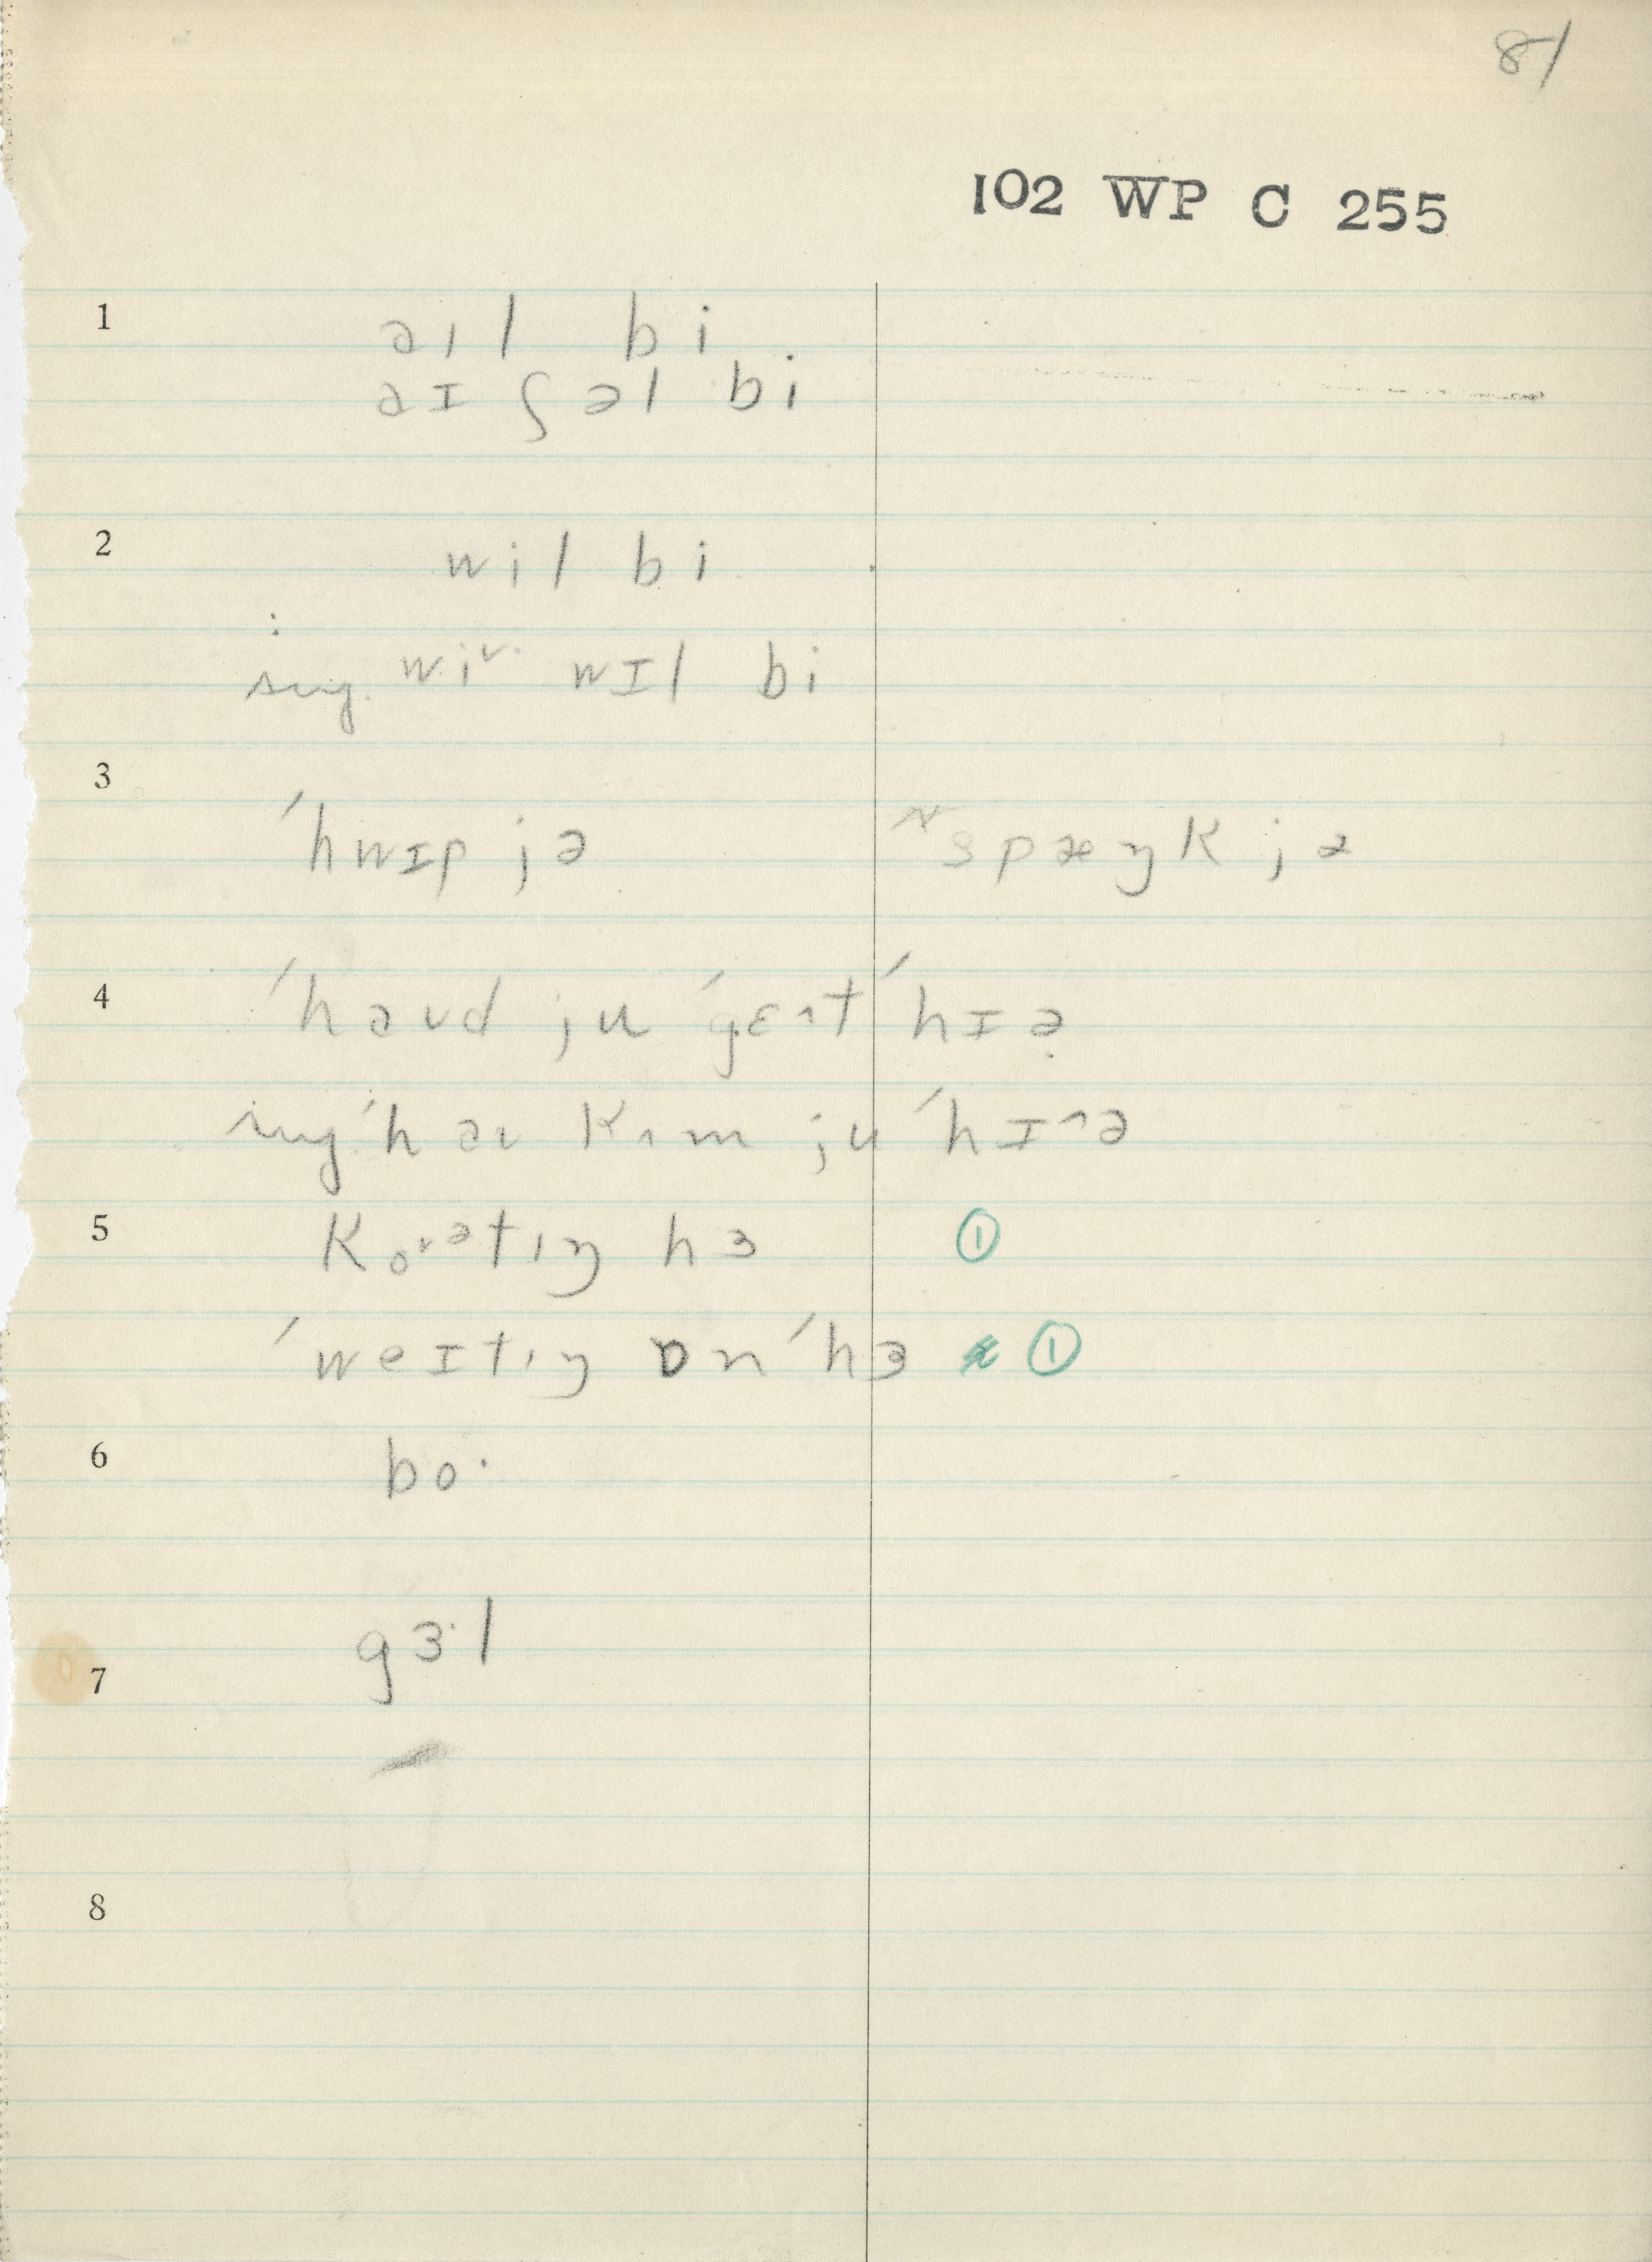 81
102 WP C 255
1 əɪl bi
əɪ ʃəl bi
2 wil bi
sug. wiᵛ· wɪl bi
3 ˈhwɪp jə ᴺspæŋk jə
4 ˈhəʊd ju ˈgɛ^t ˈhɪə̣
sug. ˈhəʊ kʌm ju ˈhɪ^ə
5 ko˞ᵊtɪŋ hɜ ①
ˈweɪtɪŋ ɒn ˈhɜ ①
6 bo·
gɜ·l
7
8